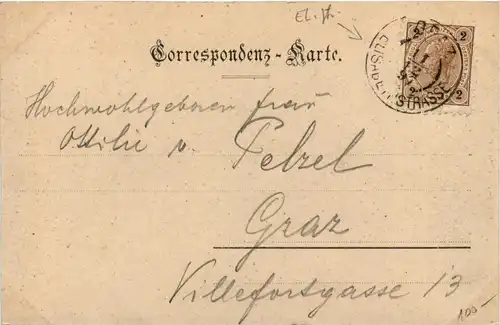 El. str.
Correspondenz-Karte.
GRAZ
ELISABETHSTRASSE
2 2
Hochwohlgeboren Frau
Ottilie v. Pelzel
Graz
Villefortgasse 13
100.-